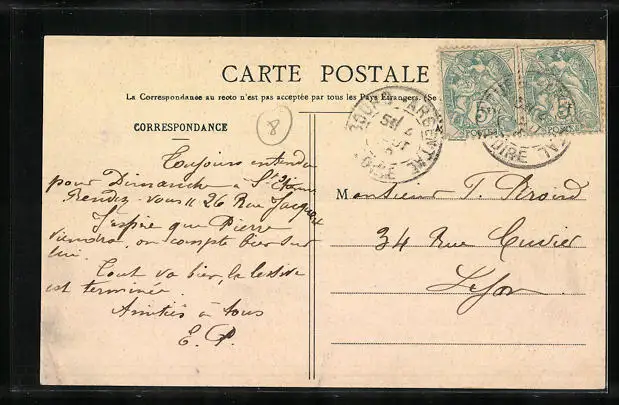 CARTE POSTALE
La Correspondance au recto n'est pas acceptée par tous les Pays Étrangers. (Se
CORRESPONDANCE
8
Toujours entendu
pour Dimanche à St Etienne
Rendez-vous 26 Rue Jacquard
J'espère que Pierre
viendra, on compte bien sur
lui.
Tout va bien, la lessive
est terminée.
Amitiés à tous
E. P.
BOURG-ARGENTAL
LOIRE
5
5
POSTES
POSTES
Monsieur T.
34 Rue Cuvier
Lyon